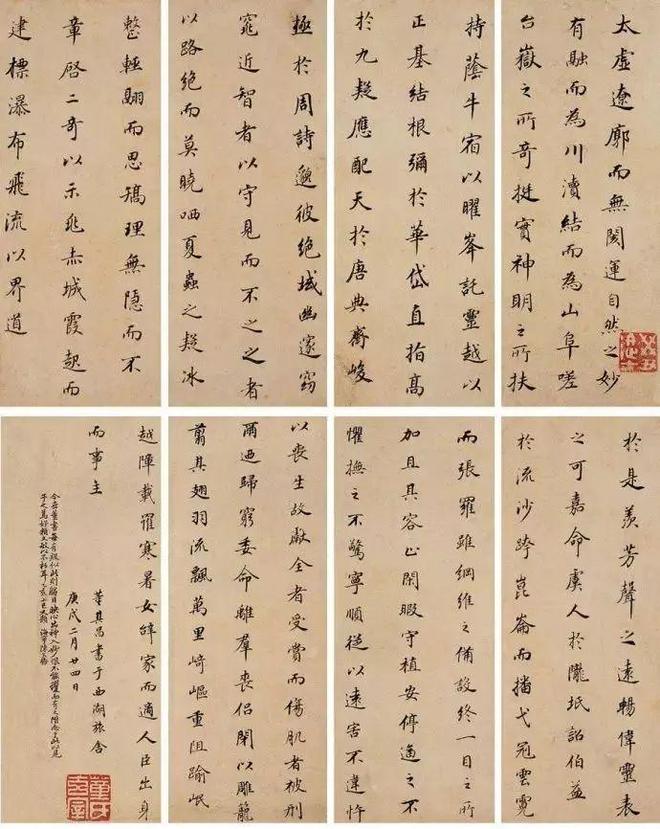 太虛遼廓而無閡運自然之妙
有融而為川瀆結而為山阜嗟
台嶽之所奇挺實神明之所扶
持蔭牛宿以曜峯託靈越以
正基結根彌於華岱直指高
於九疑應配天於唐典齊峻
極於周詩邈彼絕域幽邃窈
窕近智者以守見而不之之者
以路絕而莫曉哂夏蟲之疑冰
整輕翮而思矯理無隱而不
章啓二奇以示兆赤城霞起而
建標瀑布飛流以界道
於是羨芳聲之遠暢偉靈表
之可嘉命虞人於隴坻詔伯益
於流沙跨崑崙而播弋冠雲霓
而張羅雖綱維之備設終一目之所
加且其容止閑暇守植安停逼之不
懼撫之不驚寧順從以遠害不違忤
以喪生故獻全者受賞而傷肌者被刑
爾迺歸窮委命離羣喪侶閉以雕籠
翦其翅羽流飄萬里崎嶇重阻踰岷
越障載罹寒暑女辭家而適人臣出身
而事主
董其昌書于西湖旅舍
庚戌二月廿四日
董氏玄宰